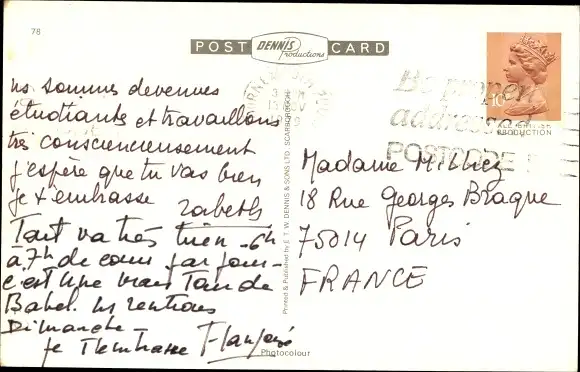 78
POST DENNIS Productions CARD
ns sommes devenues
étudiantes et travaillons
très consciencieusement
j'espère que tu vas bien
je t'embrasse
Zabeth
Tout va très bien - 6h
à 7h de cours par jour -
c'est une vraie Tour de
Babel. ns rentrons
Dimanche -
je t'embrasse
Printed & Published by E. T. W. DENNIS & SONS LTD. SCARBOROUGH
Photocolour
Be properly
addressed
POSTCODE
PRODUCTION
Madame Milliez
18 Rue Georges Braque
75014 Paris
FRANCE